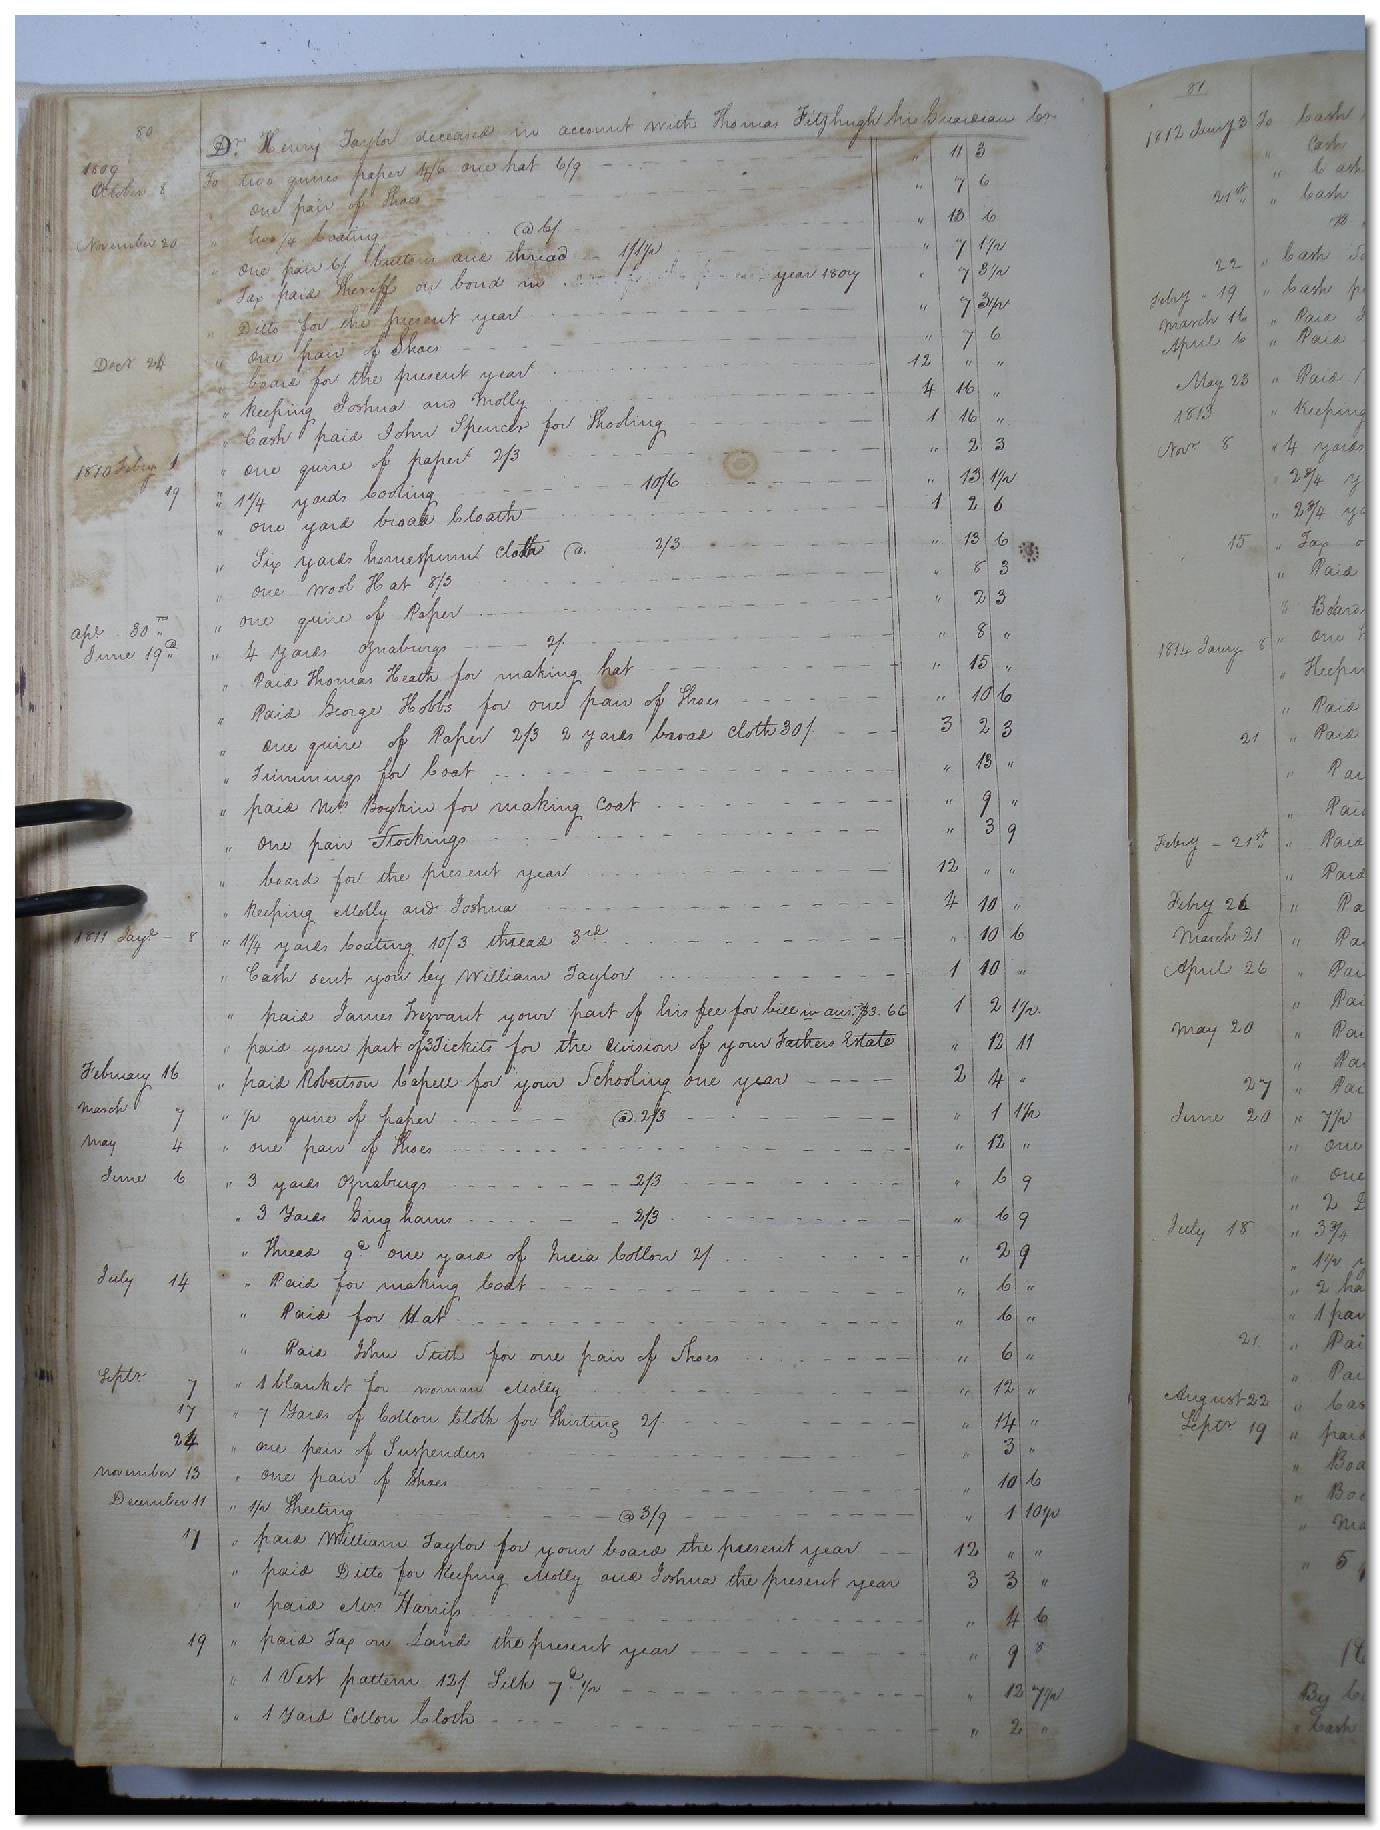 80
Dr Henry Taylor deceased in account with Thomas Fitzhugh his Guardian Cr
1809
October 8 To two quires paper 4/6 one hat 6/9 " 11 3
" one pair of Shoes " 7 6
November 20 " Coating @ 6/ " 13 6
" one pair 6/ buttons and thread 1/1½ " 7 1½
" Tax paid Sheriff on bond in year 1807 " 7 3½
" Ditto for the present year " 7 3½
Decr 24 " one pair of Shoes " 7 6
" board for the present year 12 " "
" Keeping Joshua and Molly 4 16 "
" Cash paid John Spencer for Shooling 1 16 "
1810 Febry 1 " one quire of paper 2/3 " 2 3
19 " 1¼ yards Coating 10/6 " 13 1½
" one yard broad Cloath 1 2 6
" Six yards homespunn cloth @ 2/3 " 13 6
" one wool Hat 8/3 " 8 3
Apl 30th " one quire of Paper " 2 3
June 19th " 4 yards oznaburgs 2/ " 8 "
" Paid Thomas Heath for making hat " 15 "
" Paid George Hobbs for one pair of Shoes " 10 6
" one quire of Paper 2/3 2 yards broad cloth 30/ 3 2 3
" Trimmings for Coat " 13 "
" paid Mrs Boykin for making coat " 9 "
" one pair Stockings " 3 9
" board for the present year 12 " "
" Keeping Molly and Joshua 4 10 "
1811 Jay 8 " 1¼ yards Coating 10/3 thread 3d " 10 6
" Cash sent you by William Taylor 1 10 "
" paid James Trezvant your part of his fee for bill in 3.66 1 2 1½
" paid your part of 3 Tickets for the division of your Fathers Estate " 12 11
February 16 " paid Robertson Capell for your Schooling one year 2 4 "
March 7 " ½ quire of paper @ 2/3 " 1 1½
May 4 " one pair of Shoes " 12 "
June 6 " 3 yards oznaburgs 2/3 " 6 9
" 3 Yards Ginghams 2/3 " 6 9
" Thread 9d one yard of India Cotton 2/ " 2 9
July 14 " Paid for making Coat " 6 "
" Paid for Hat " 6 "
" Paid John Stith for one pair of Shoes " 6 "
Septr 7 " 1 blanket for woman Molly " 12 "
17 " 7 Yards of Cotton Cloth for Shirting 2/ " 14 "
24 " one pair of Suspenders " 3 "
November 13 " one pair of Shoes " 10 6
December 11 " ½ Sheeting @ 3/9 " 1 10½
17 " paid William Taylor for your board the present year 12 " "
" paid Ditto for Keeping Molly and Joshua the present year 3 3 "
" paid Mrs Harriss " 4 6
19 " paid Tax on Land the present year " 9 8
" 1 Vest pattern 12/ Silk 7d½ " 12 7½
" 1 Yard Cotton Cloth " 2 "
81
1812 Jany 3 To Cash
" Cash
" Cash
21st " Cash
22 " Cash
Febry 19 " Cash
March 16 " Paid
April 6 " Paid
May 23 " Paid
1813 " Keeping
Novr 8 " 4 yards
" 2¾
" 2¾
15 " Tax
" Paid
" Board
1814 Jany 8 " one
" Keepin
" Paid
21 " Paid
" Pai
" Paid
Febry 21st " Paid
" Paid
Febry 26 " Pa
March 21 " Pa
April 26 " Pai
" Pai
May 20 " Pai
" Pa
27 " Pai
June 20 " 7½
" one
" one
" 2
July 18 " 3¾
" 1½
" 2 ha
" 1 pair
21 " Pai
" Pai
August 22 " Cas
Septr 19 " paid
" Boa
" Boa
" Ma
" 5
By
" Cash